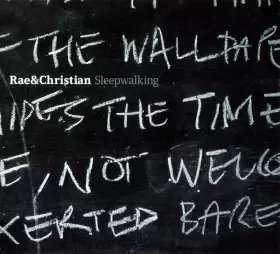 F THE WALLPAPE
Rae&Christian Sleepwalking
HIDES THE TIME
E, NOT WELCO
XERTED BARE